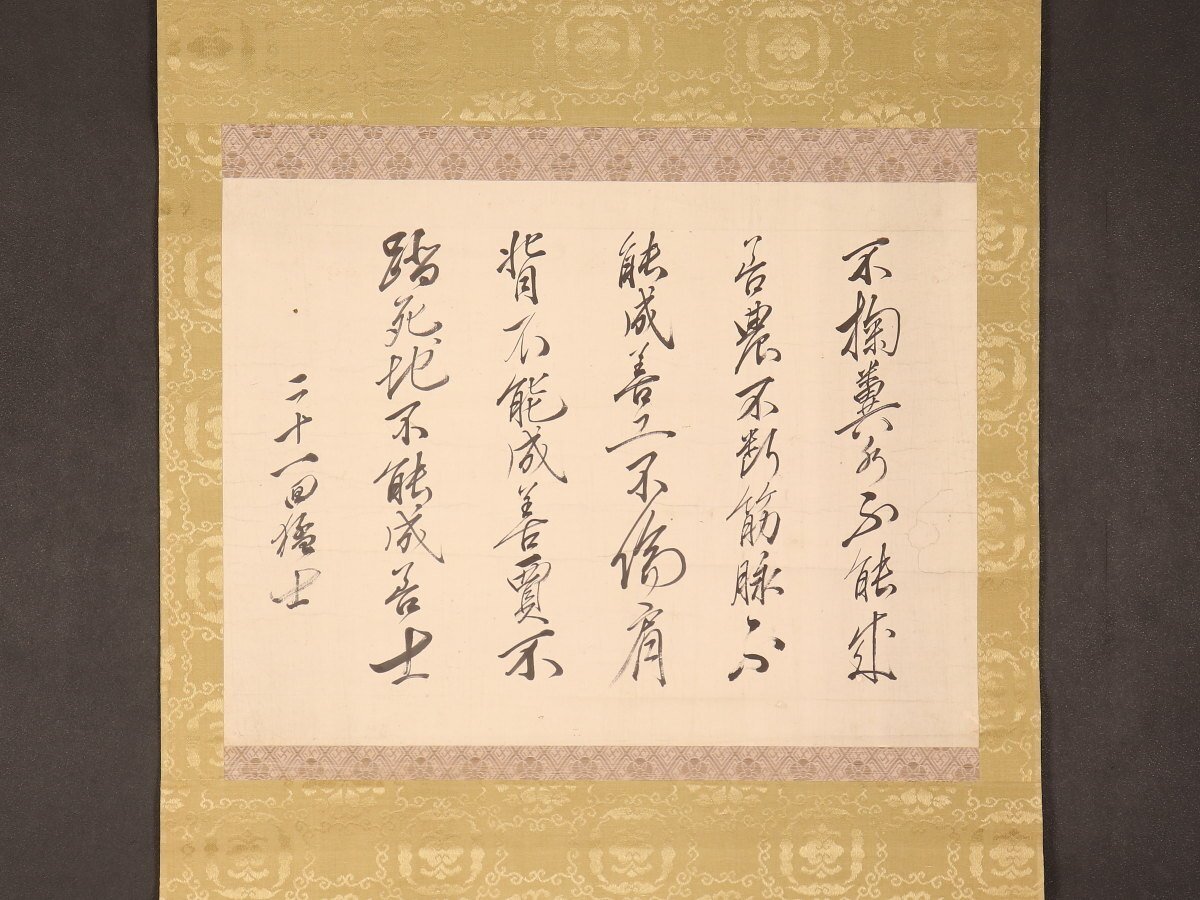 不掬糞水不能成
善農不断筋脉不
能成善工不傷肩
背不能成善賈不
踏死地不能成善士
二十一回猛士